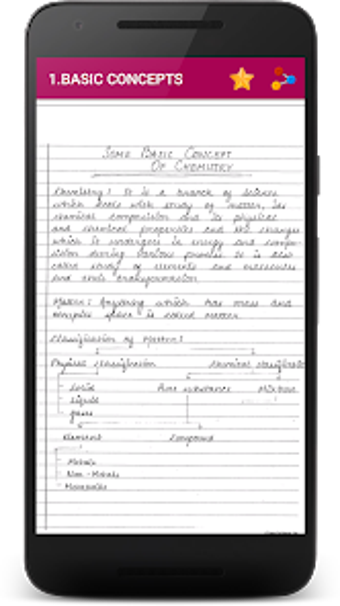 1.BASIC CONCEPTS
SOME BASIC CONCEPT
OF CHEMISTRY
Chemistry : It is a branch of science
which deals with study of matter, its
chemical composition and its physical
and chemical properties and the changes
which it undergoes in energy and compo-
sition during various process. It is also
called study of elements and molecules
and their transformation
Matter : Anything which has mass and
occupies space is called matter.
Classification of Matter :
Physical classification Chemical classification
Solid Pure substance Mixture
Liquid
gases
Element Compound
Metals
Non - Metals
Metalloids